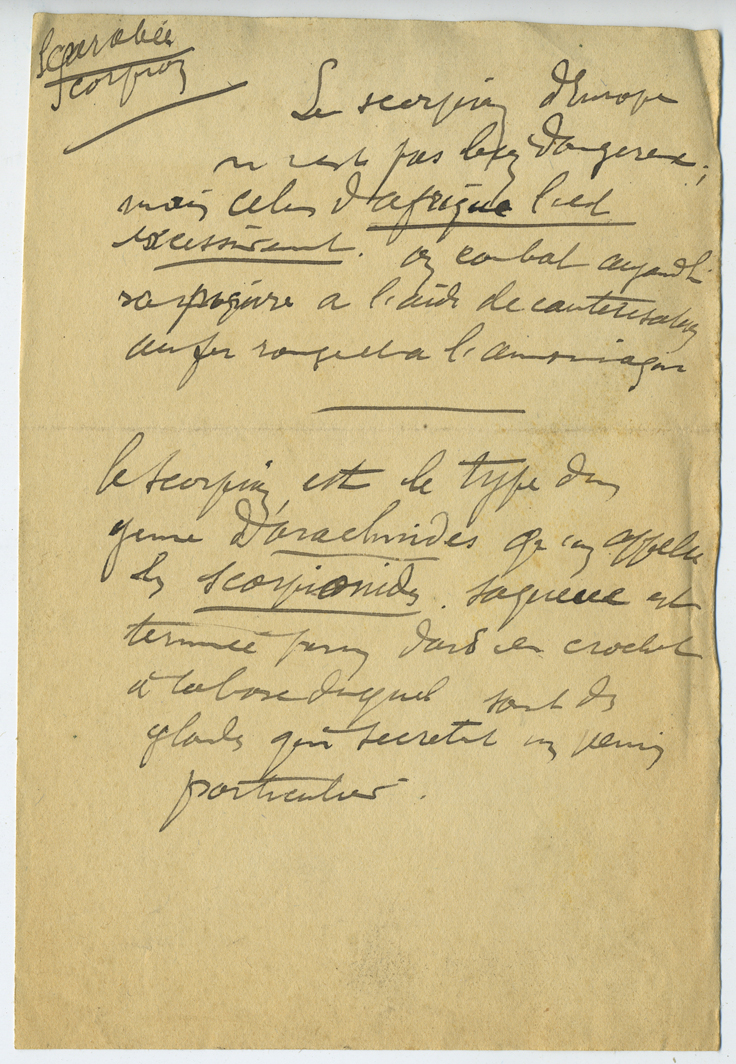 Scarabée
Scorpion
Le scorpion d'Europe
n'est pas bien dangereux ;
mais celui d'afrique l'est
excessivement. on combat
sa piqûre a l'aide de cauterisation
au fer rouge et a l'ammoniaque
le scorpion est le type d'un
genre D'arachnides qu'on appelle
les scorpionides. sa queue est
terminée par un dard en crochet
à la base duquel sont des
glandes qui secretent un venin
particulier.